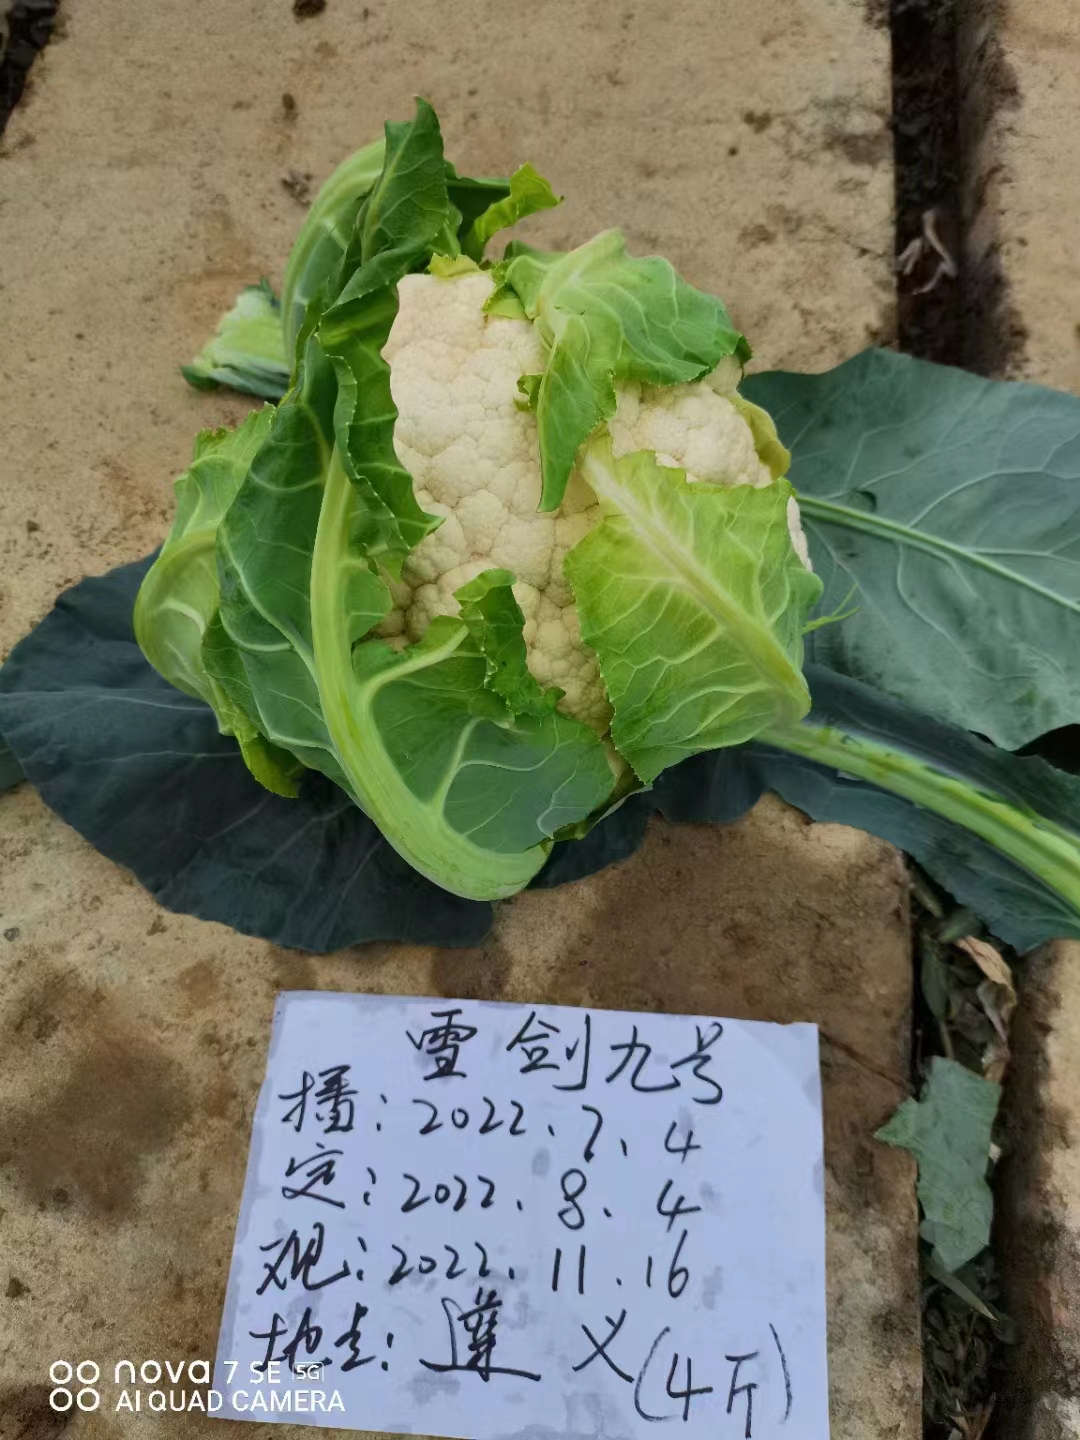 雪剑九号
播：2022.7.4
定：2022.8.4
观：2022.11.16
地点：蓬义(4斤)
nova 7 SE 5G
AI QUAD CAMERA